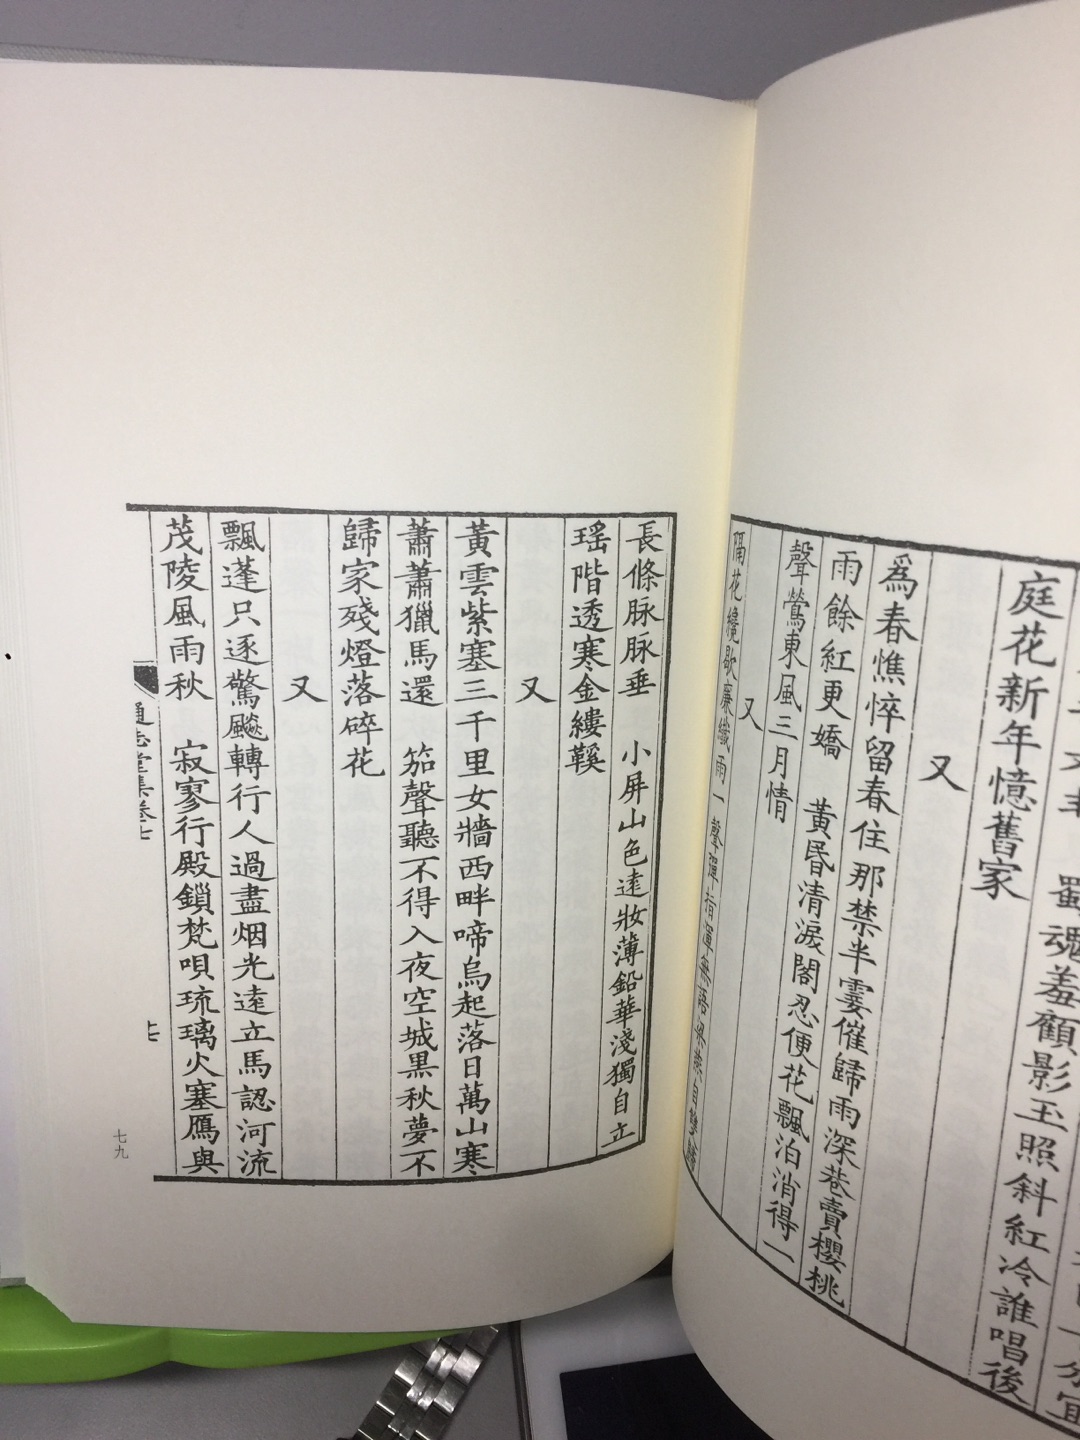 蜀魂羞顧影玉照斜紅冷誰唱後
庭花新年憶舊家
又
爲春憔悴留春住那禁半霎催歸雨深巷賣櫻桃
雨餘紅更嬌 黃昏清淚閣忍便花飄泊消得一
聲鶯東風三月情
又
隔花纔歇廉纖雨一聲彈指渾無語梁燕自雙歸
長條脉脉垂 小屏山色遠妝薄鉛華淺獨自立
瑶階透寒金縷鞵
又
黃雲紫塞三千里女牆西畔啼烏起落日萬山寒
蕭蕭獵馬還 笳聲聽不得入夜空城黑秋夢不
歸家殘燈落碎花
又
飄蓬只逐驚飈轉行人過盡烟光遠立馬認河流
茂陵風雨秋 寂寥行殿鎖梵唄琉璃火塞鴈與
通志堂集卷七
十七
七九